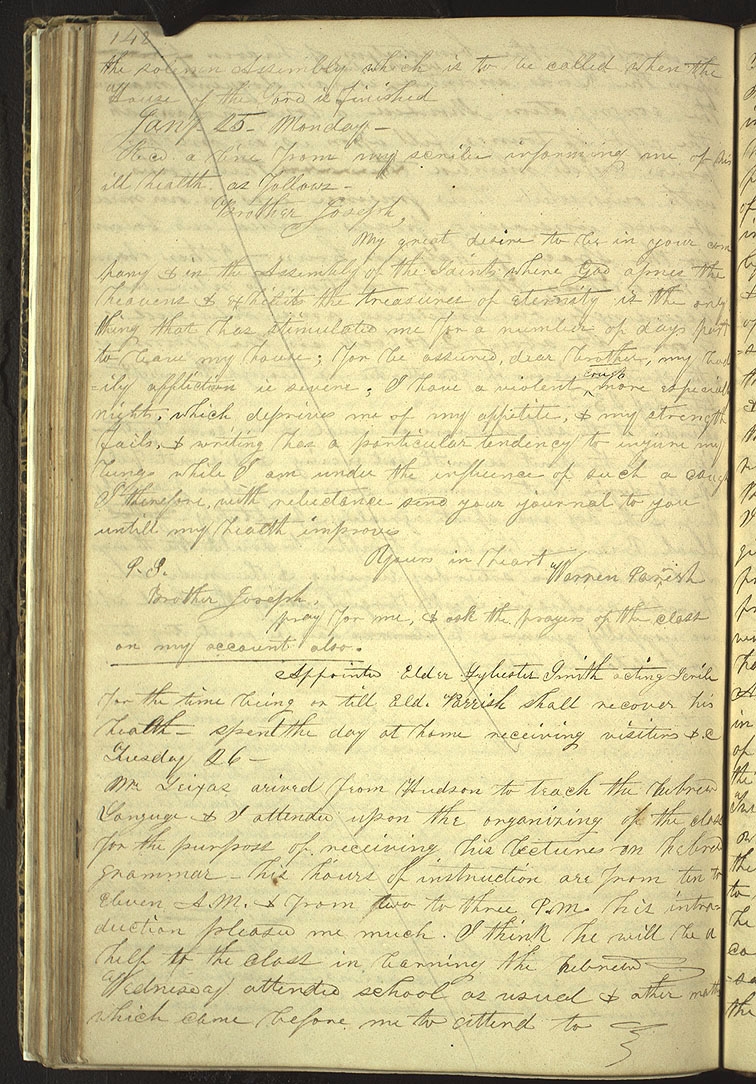 142
the solemn Assembly which is to be called when the
House of the Lord is finished
Jany 25- Monday-
Recd. a line from my scribe informing me of his
ill health as follows-
Brother Joseph,
My great desire to be in your com
pany & in the Assembly of the Saints where God opnes the
heavens & exhibits the treasures of eternity is the only
thing that has stimulated me for a number of days past
to leave my house; for be assured, dear brother, my bod
-ily affliction is severe; I have a violent cough more especialy
nights, which deprives me of my appetite, & my strength
fails, & writing has a particular tendency to injure my
lungs while I am under the influence of such a cough
I therefore, with reluctance send your journal to you
untill my health improves
Yours in heart
Warren Parrish
P.S.
Brother Joseph,
pray for me, & ask the prayers of the class
on my account also.
Appointed Elder Sylvester Smith acting Scribe
for the time being or till Eld. Parrish shall recover his
health- spent the day at home receiving visiters &.c
Tuesday 26-
Mr. Seixas arived from Hudson to teach the hebrew
Languge & I attended upon the organizing of the class
for the purpose of receiving his lectures on hebrew
grammar- his hours of instruction are from ten to
eleven A.M. & from two to three P.M. his intro=
duction pleased me much. I think he will be a
help to the class in learning the hebrew
Wednesday attended school as usual & other matters
which came before me to attend to